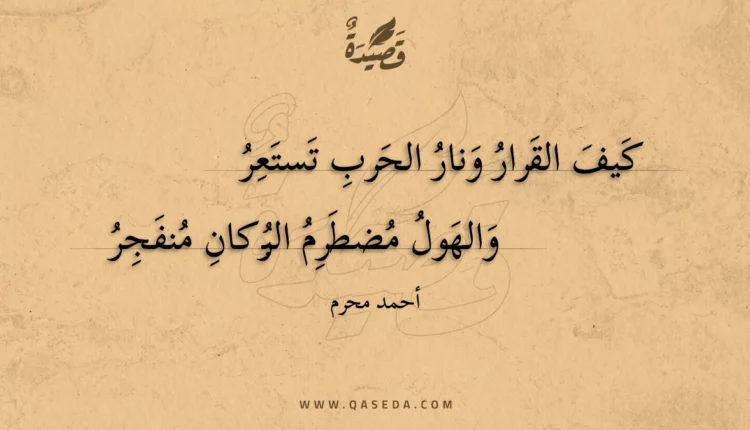 قَصِيْدَةٌ
كَيفَ القَرارُ وَنارُ الحَربِ تَستَعِرُ
وَالهَولُ مُضطَرِمُ البُركانِ مُنفَجِرُ
أحمد محرم
WWW.QASEDA.COM